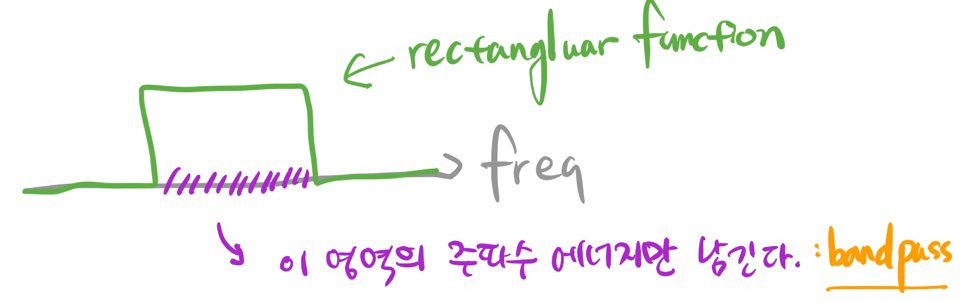 rectangluar function
freq
이 영역의 주파수 에너지만 남긴다. : bandpass